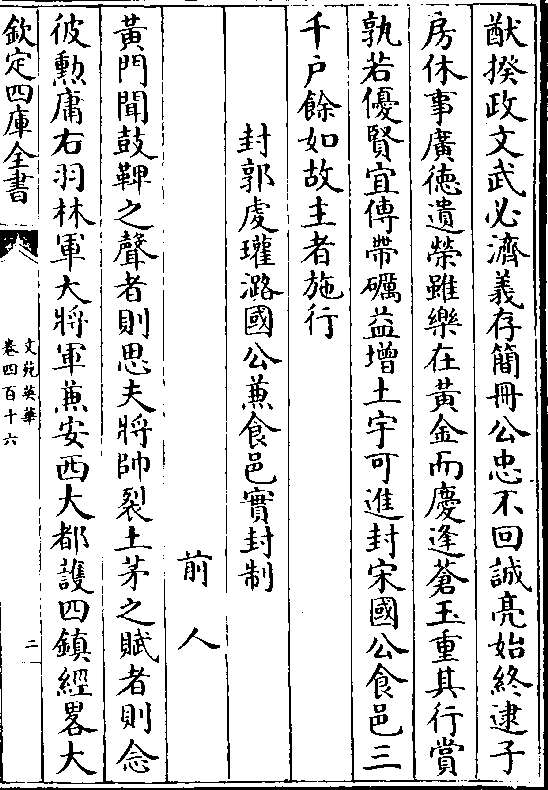 猷揆政文武必濟義存簡冊公忠不回誠亮始終逮子
房休事廣徳遺榮雖樂在黃金而慶逢蒼玉重其行賞
孰若優賢宜傳帶礪益增土宇可進封宋國公食邑三
千户餘如故主者施行
封郭䖍瓘潞國公兼食邑實封制
前人
黃門聞鼓鞞之聲者則思夫將帥裂土茅之賦者則念
彼勲庸右羽林軍大將軍兼安西大都䕶四鎮經畧大
欽定四庫全書
文苑英華
卷四百十六
二